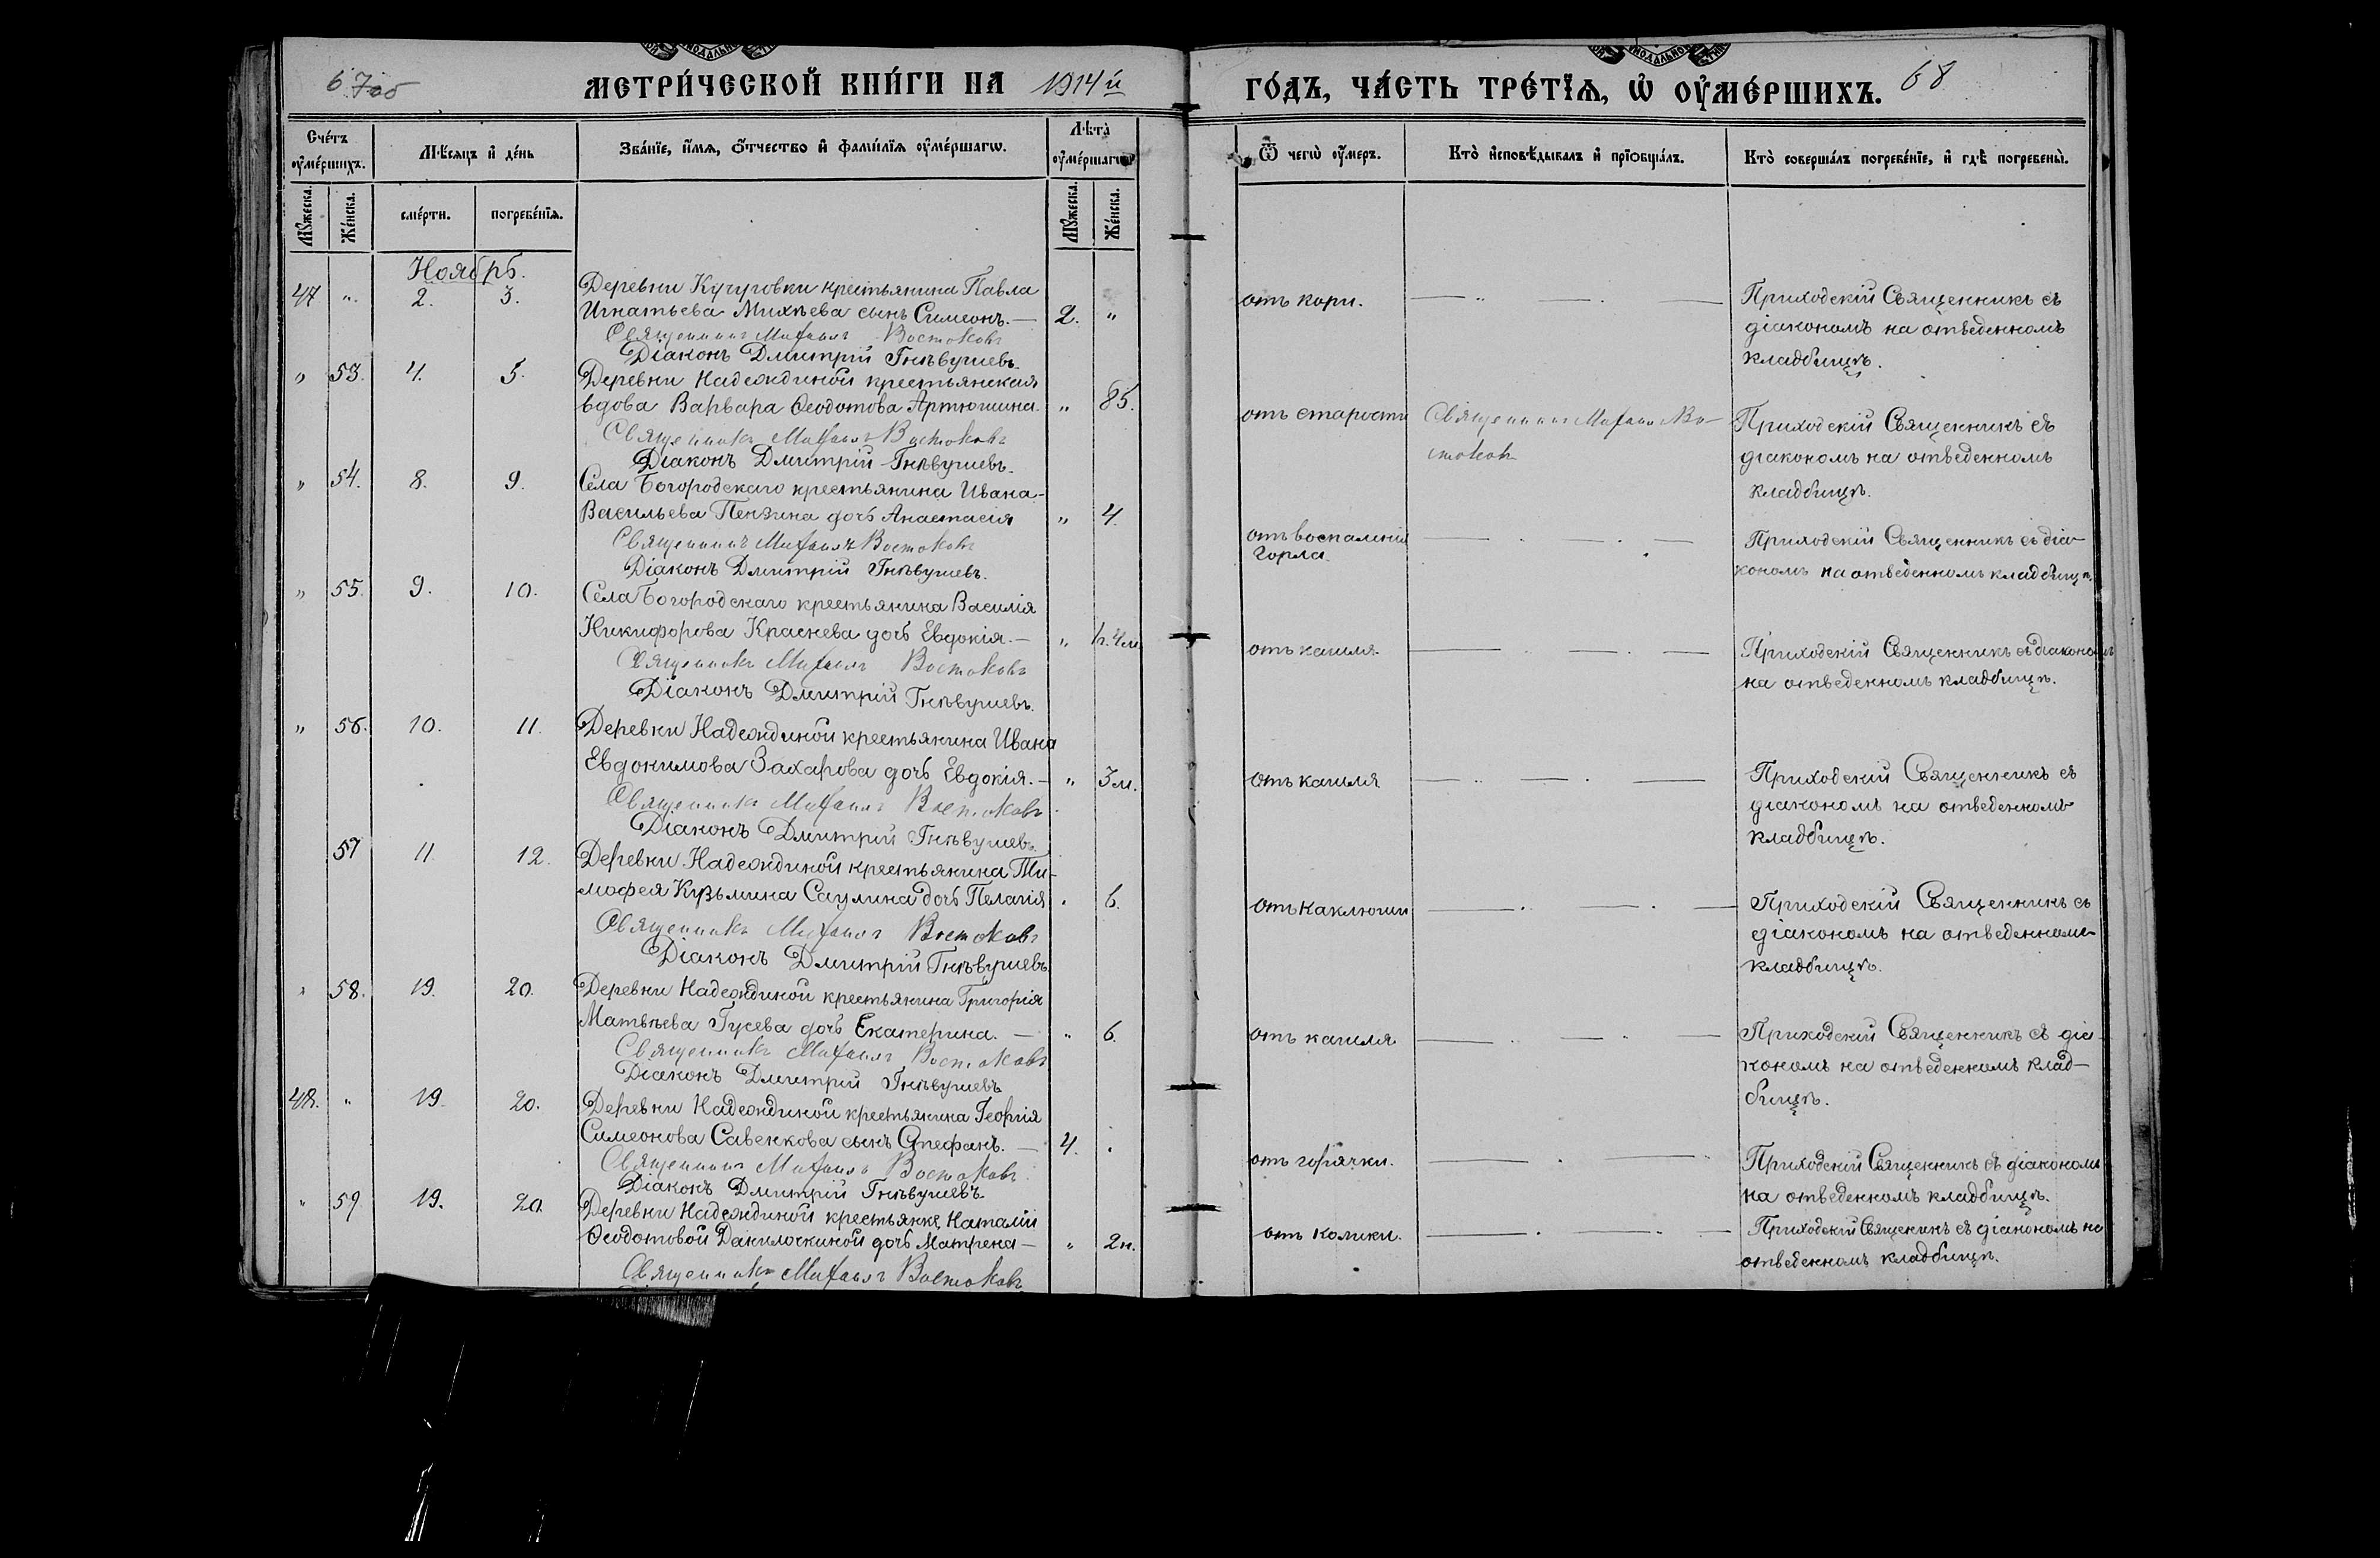 67об
МЕТРИ́ЧЕСКОЙ КНИ́ГИ НА 1914й
ГО́ДЪ, ЧА́СТЬ ТРЕ́ТЇѦ, Ѡ ОУМЕ́РШИХЪ. 68
Сче́тъ оуме́ршихъ.
Мѣ́сяцъ и де́нь
Зва́нїе, и́мя, о́тчество и фами́лїя оуме́ршагѡ.
Лѣта̀ оуме́ршагѡ
Ѿ чегѡ̀ оу́меръ.
Кто̀ исповѣ́дывалъ и прїѡбща́лъ.
Кто̀ соверша́лъ погребе́нїе, и гдѣ̀ погребены̀.
Мꙋ́жеска.
Же́нска.
сме́рти.
погребе́нїя.
Мꙋ́жеска.
Же́нска.
Ноябрь.
47 " 2. 3. Деревни Кучуровки крестьянина Павла
Игнатьева Михѣева сынъ Симеонъ. — 2. "
Священникъ Михаилъ Востоковъ
Діаконъ Дмитрій Гнѣвушевъ.
отъ кори.
Приходскій Священникъ съ
діакономъ на отведенномъ
кладбищѣ.
" 53. 4. 5. Деревни Надеждиной крестьянская
вдова Варвара Ѳеодотова Артюшина. " 85.
Священникъ Михаилъ Востоковъ
Діаконъ Дмитрій Гнѣвушевъ.
отъ старости
Священникъ Михаилъ Во-
стоковъ
Приходскій Священникъ съ
діакономъ на отведенномъ
кладбищѣ.
" 54. 8. 9. Села Богородскаго крестьянина Ивана
Васильева Пензина дочь Анастасія " 4.
Священникъ Михаилъ Востоковъ
Діаконъ Дмитрій Гнѣвушевъ.
отъ воспаленія
горла.
Приходскій Священникъ съ діа-
кономъ на отведенномъ кладбищѣ.
" 55. 9. 10. Села Богородскаго крестьянина Василія
Никифорова Краснева дочь Евдокія. — "
Священникъ Михаилъ Востоковъ
Діаконъ Дмитрій Гнѣвушевъ.
отъ кашля.
Приходскій Священникъ съ діакономъ
на отведенномъ кладбищѣ.
" 56. 10. 11. Деревни Надеждиной крестьянина Ивана
Евдокимова Захарова дочь Евдокія. — " 3м.
Священникъ Михаилъ Востоковъ
Діаконъ Дмитрій Гнѣвушевъ.
отъ кашля
Приходскій Священникъ съ
діакономъ на отведенномъ
кладбищѣ.
57 11. 12. Деревни Надеждиной крестьянина Ти-
мофея Кузьмина Саулина дочь Пелагія . 6.
Священникъ Михаилъ Востоковъ
Діаконъ Дмитрій Гнѣвушевъ.
отъ каклюши
Приходскій Священникъ съ
діакономъ на отведенномъ
кладбищѣ.
" 58. 19. 20. Деревни Надеждиной крестьянина Григорія
Матвѣева Гусева дочь Екатерина. — " 6.
Священникъ Михаилъ Востоковъ
Діаконъ Дмитрій Гнѣвушевъ
отъ кашля
Приходскій Священникъ съ діа-
кономъ на отведенномъ клад-
бищѣ.
48. " 19. 20. Деревни Надеждиной крестьянина Георгія
Симеонова Савенкова сынъ Стефанъ. — 4. .
Священникъ Михаилъ Востоковъ
Діаконъ Дмитрій Гнѣвушевъ.
отъ горячки.
Приходскій Священникъ съ діакономъ
на отведенномъ кладбищѣ.
" 59. 19. 20. Деревни Надеждиной крестьянке Наталіи
Ѳеодотовой Данилочкиной дочь Матрена — " 2н.
Священникъ Михаилъ Востоковъ
отъ колики.
Приходскій Священникъ съ діакономъ на
отведенномъ кладбищѣ.